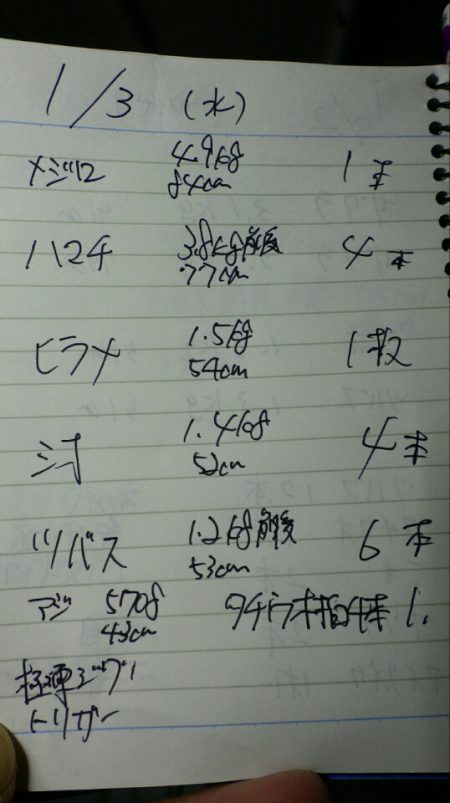 1/3 (水)
メジロ 4.9kg 84cm 1本
ハマチ 3.8kg前後 77cm 4本
ヒラメ 1.5kg 54cm 1枚
シオ 1.4kg 52cm 4本
ツバス 1.2kg前後 53cm 6本
アジ 570g 43cm タチウオ指4本 1.
極連ジグ
トリガー